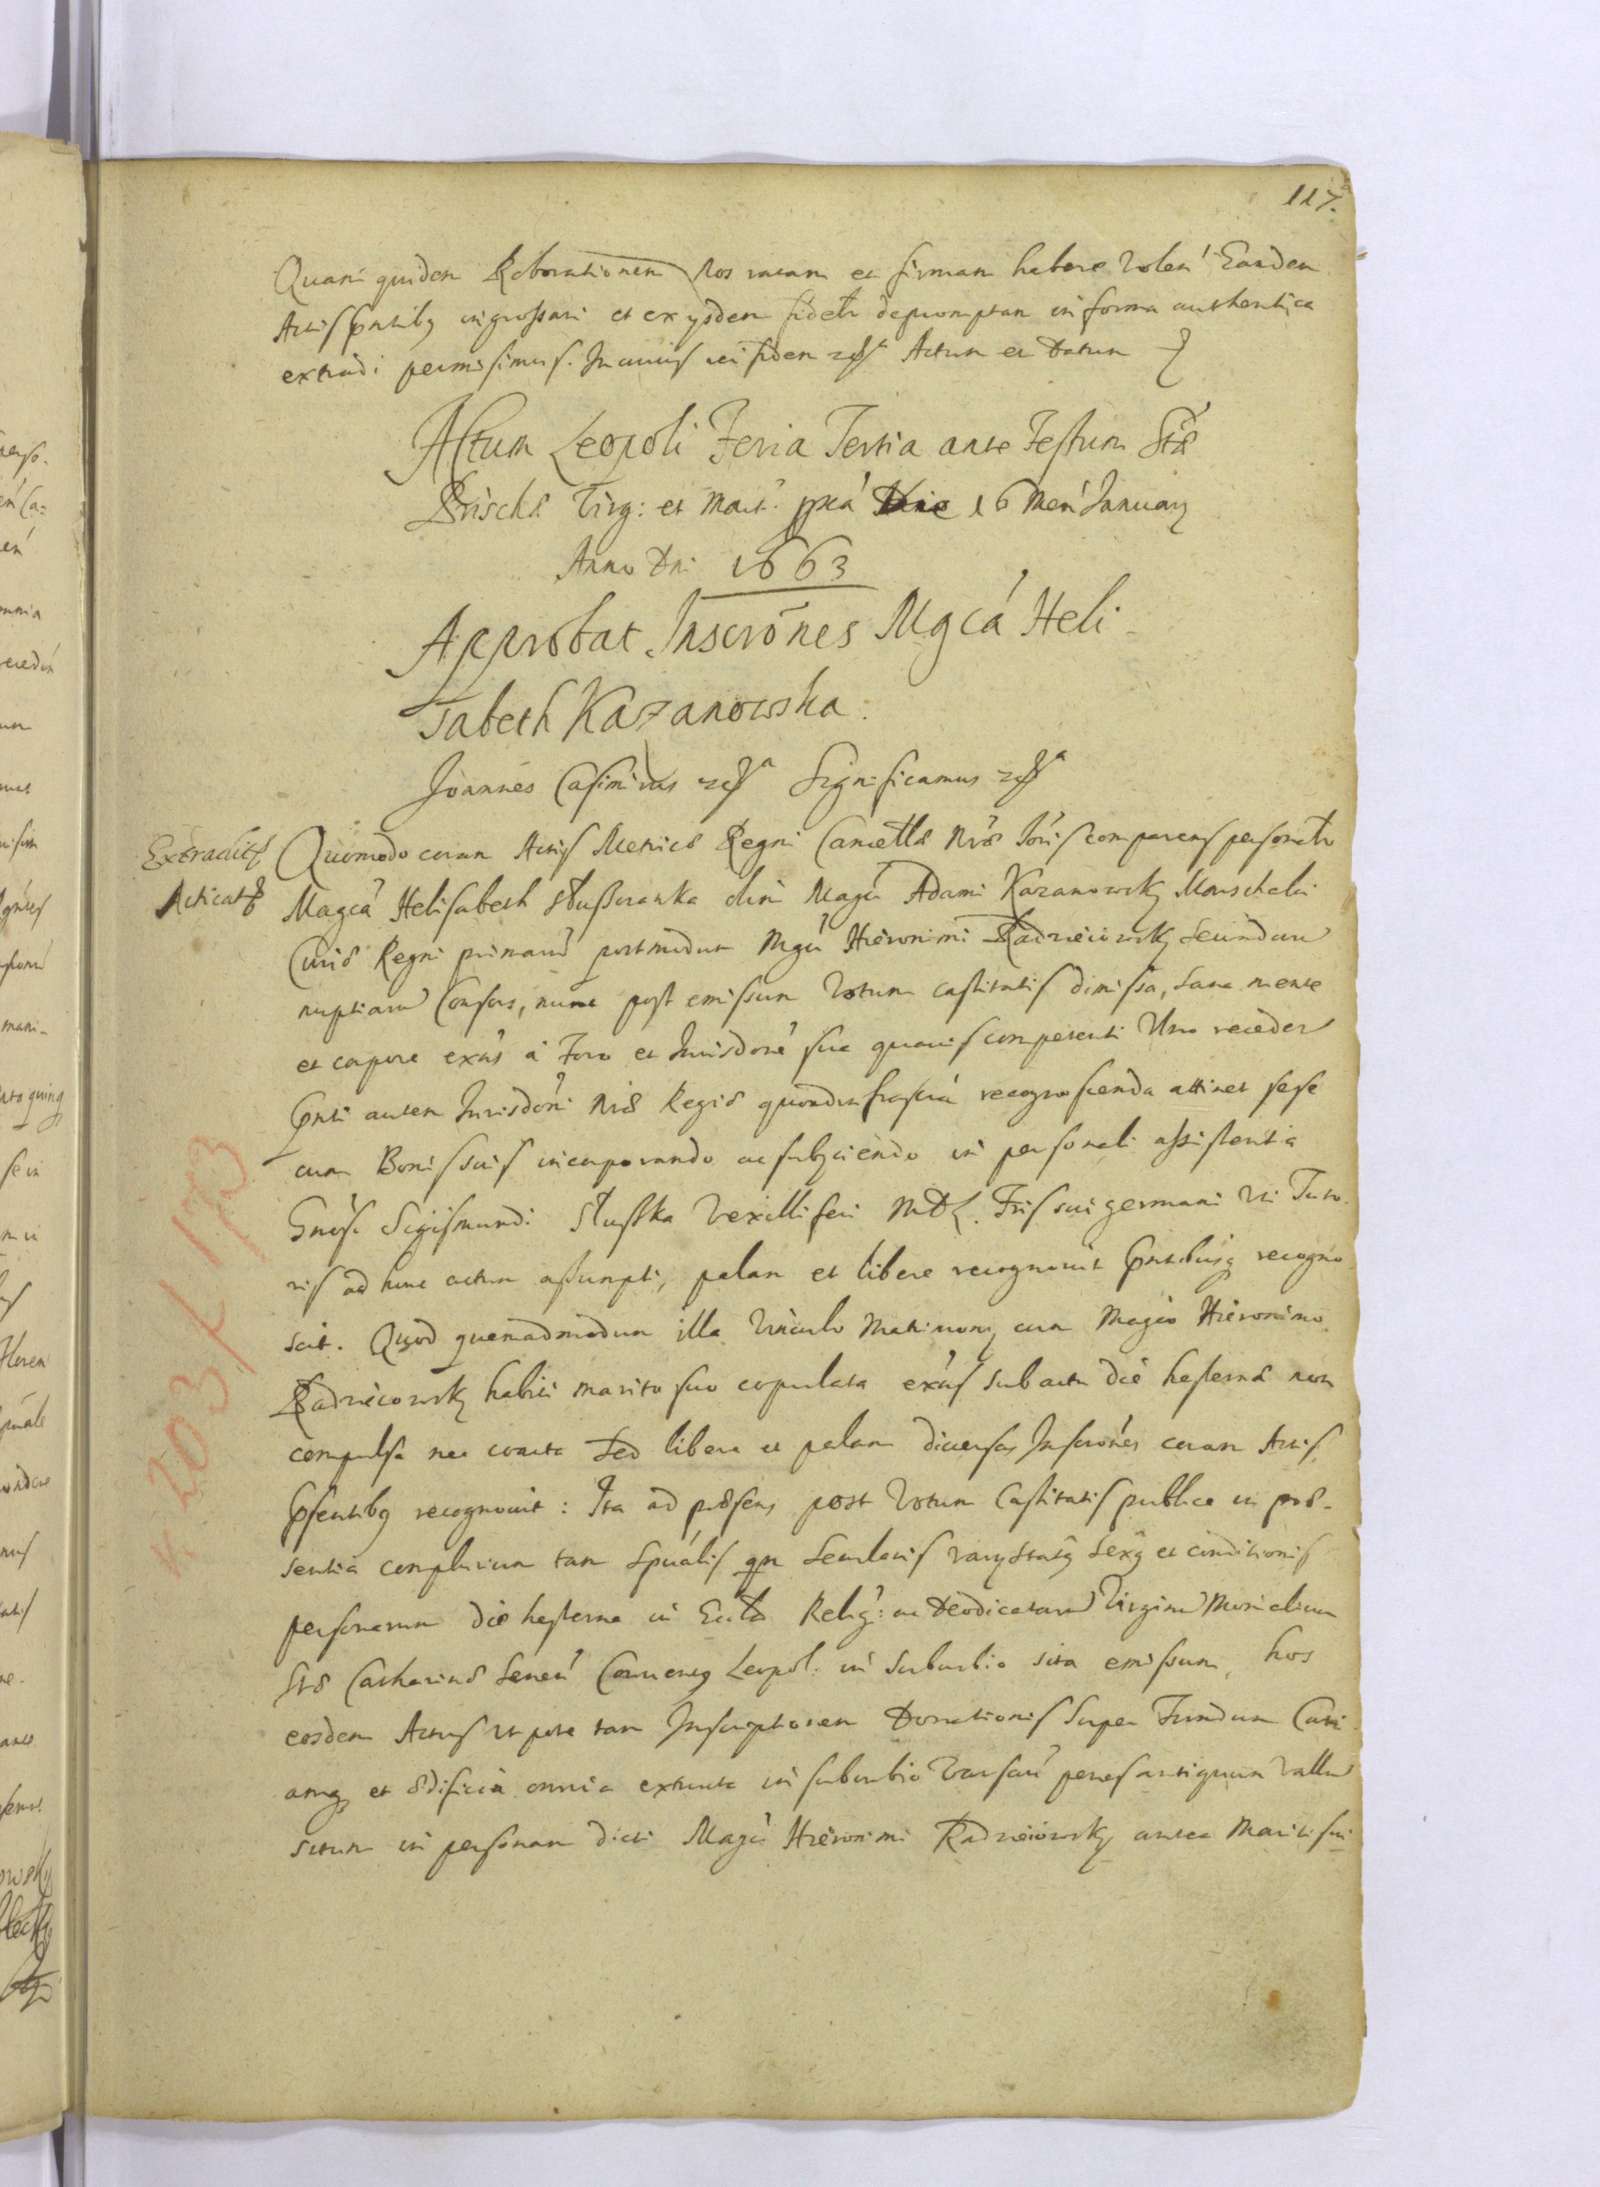 117.
Quam quidem Roborationem Nos ratam et firmam habere volen' Eandem
Actis pntibq ingrossari et ex ysdem fideltr depromptam in forma authentica
extradi permisimus. In cuius rei fidem Actum et Datum
Actum Leopoli Feria Tertia ante Festum Stæ
Priscæ Virg: et Mart: pxa' Die 16 Men' January
Anno Dni 1663
Approbat Inscrõnes Mgca' Heli
sabeth Kazanowska.
Joannes Casimirus Significamus
Extradit
Acticat
Quomodo coram Actis Metrices Regni Cancellæ Nræ Jóris comparens personaltr
Magca' Helisabeth Słuszczanka olim Magci Adami Kazanowsky Marschalci
Curiæ Regni primaru' postmodum Mgci Hieronimi Radzieiowsky secundaru'
nuptiaru' Consors, nunc post emissum Votum castitatis dimissa, sana mente
et corpore exn's à Foro et Jurisdone' sua quauis competenti Uno receden'
Pnti autem Jurisdoni' Nræ Regiæ quoad infrascra' recognoscenda attinet sese
cum Bonis suis incorporando ac subjciendo in personali assistentia
Gnosi Sigismundi Słuszka Vexilliferi M D L. Fris sui germani uti Tuto-
ris ad hunc actum assumpti, palam et libere recognouit Pntibusq recogno
scit. Quod quemadmodum illa Vinculo Matrimony cum Magco Hieronimo
Radzieiowsky habiti marito suo copulata exn's sub actu die hesterna non
compulsa nec coacta sed libere et palam diuersas Inscrónes coram Actis
Pfentibq recognouit: Ita ad præsens post Votum Castitatis publice in præ-
sentia complurium tam Spualis qm secularis vary statq sexq et conditionis
personarum die hesterna in Eccla Relig: ac Deodicataru' Virginu' Monialium
Stæ Catharinæ Senen' Conuentq Leopol: in suburbio sita emissum, hos
eosdem Actus ut pote tam Inscriptionem Donationis super Fundum Curi
amq et ædificia omnia extructa in suburbio Varsau' penes antiquum Vallu'
situm in personam dicti Magci Hieronimi Radzieiowsky antea Mariti sui
K 203 f 173